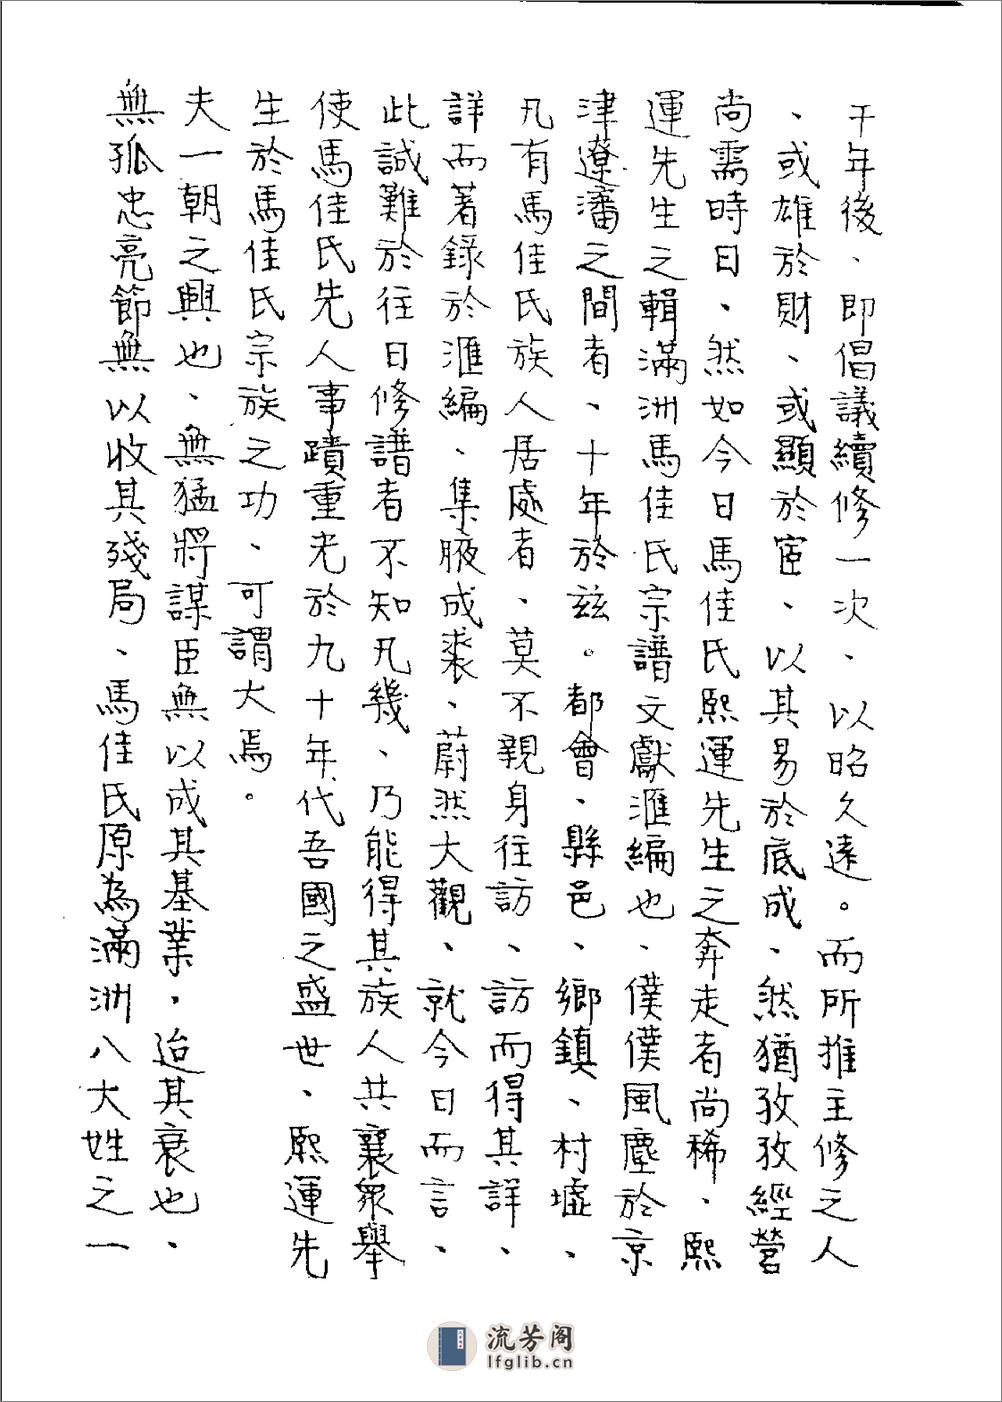 干年後、即倡議續修一次、以昭久遠。而所推主修之人
、或雄於財、或顯於宦、以其易於底成、然猶孜孜經營
尚需時日、然如今日馬佳氏熙運先生之奔走者尚稀、熙
運先生之輯滿洲馬佳氏宗譜文獻滙編也、僕僕風塵於京
津遼瀋之間者、十年於茲。都會、縣邑、鄉鎮、村墟、
凡有馬佳氏族人居處者、莫不親身往訪、訪而得其詳、
詳而著錄於滙編、集腋成裘、蔚然大觀、就今日而言、
此誠難於往日修譜者不知凡幾、乃能得其族人共襄眾舉
使馬佳氏先人事蹟重光於九十年代吾國之盛世、熙運先
生於馬佳氏宗族之功、可謂大焉。
夫一朝之興也、無猛將謀臣無以成其基業，迨其衰也、
無孤忠亮節無以收其殘局、馬佳氏原為滿洲八大姓之一
流芳阁
lfglib.cn